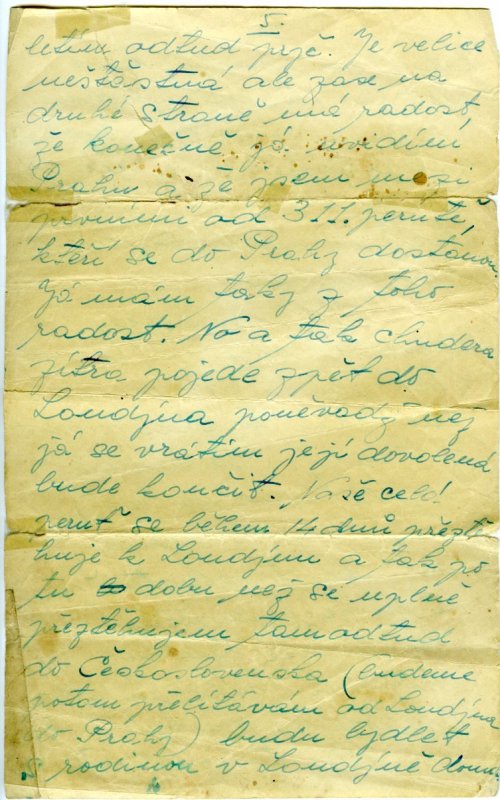 5.
letím odtud pryč. Je velice
neštěstná ale zase na
druhé straně má radost,
že konečně já uvidím
Prahu a že jsem mezi
prvními od 311. perutě,
kteří se do Prahy dostanou.
Já mám taky z toho
radost. No a tak chudera
zítra pojede zpět do
Londýna poněvadž než
já se vrátím její dovolená
bude končit. Naše celá
peruť se během 14 dnů přestě
huje k Londýnu a tak po
tu dobu než se úplně
přestěhujem tamodtud
do Československa (budeme
potom přelítávám od Londýna
do Prahy) budu bydlet
s rodinou v Londýně doma